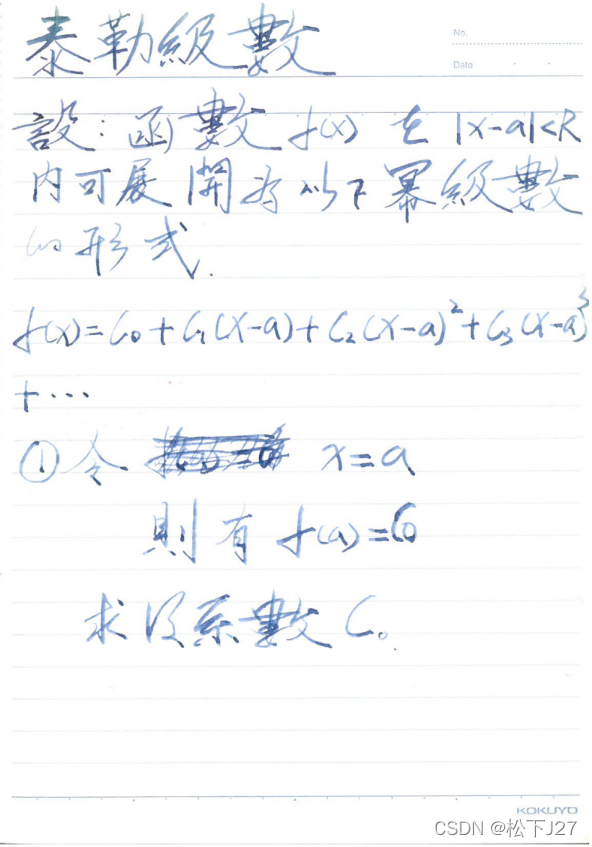 泰勒級數
No.
Date
設：函數 f(x) 在 |x-a|<R
内可展開為以下冪級數
的形式.
f(x)=C₀+C₁(x-a)+C₂(x-a)²+C₃(x-a)³
+⋯
① 令 x=a
則有 f(a)=C₀
求得系數 C₀.
KOKUYO
CSDN @松下J27